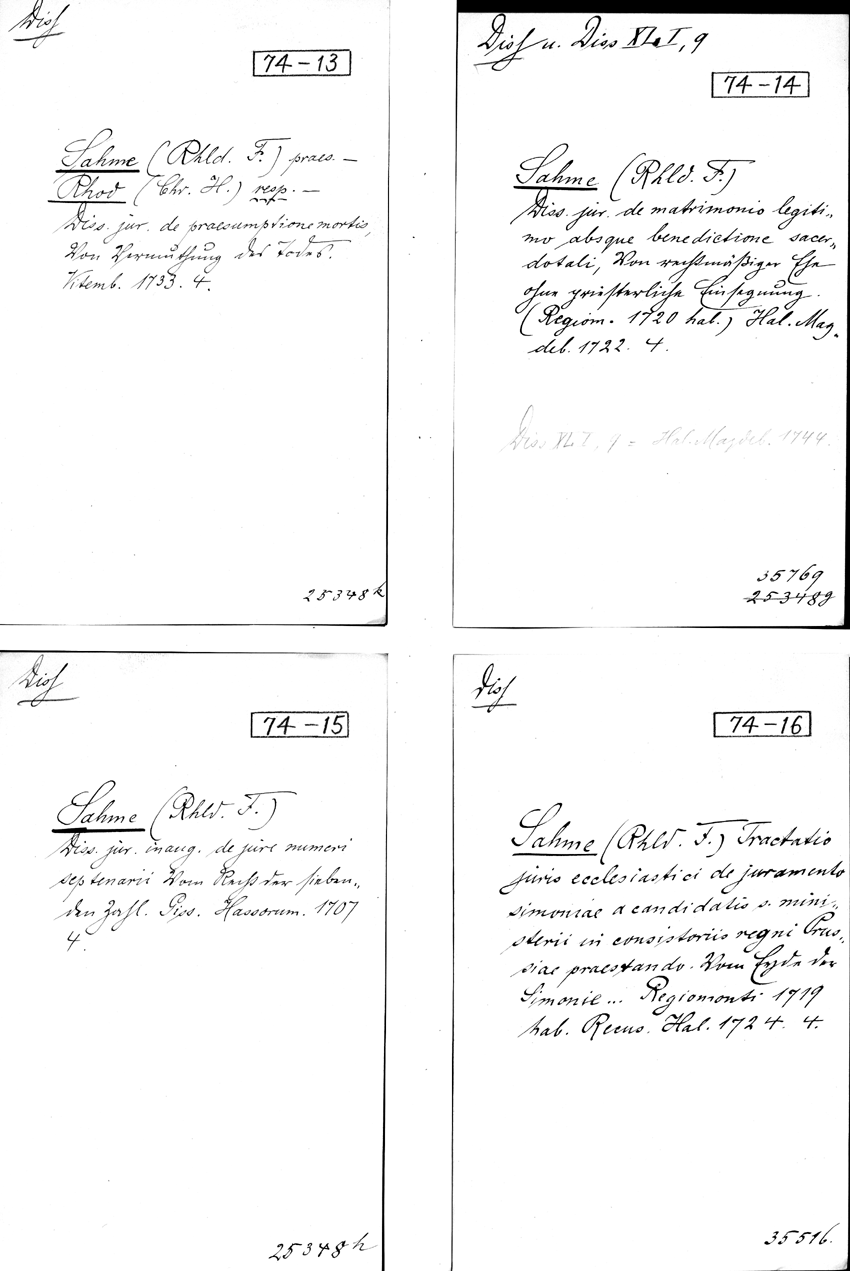 Diss
74-13
Sahme (Rhld. F.) praes. —
Rhod (Chr. H.) resp. —
Diss. jur. de praesumptione mortis,
Von Vermuthung des Todes.
Vitemb. 1733. 4.
25348k
Diss u. Diss XL I, 9
74-14
Sahme (Rhld. F.)
Diss. jur. de matrimonio legiti„
mo absque benedictione sacer„
dotali, Von rechtmäßiger Ehe
ohne priesterliche Einsegnung.
(Regiom. 1720 hab.) Hal. Mag„
deb. 1722. 4.
Diss XL I, 9 = Hal. Magdeb. 1744.
35769
25348g
Diss
74-15
Sahme (Rhld. F.)
Diss. jur. inaug. de jure numeri
septenarii Vom Recht der sieben„
den Zahl. Giss. Hassorum. 1707
4.
25348h
Diss
74-16
Sahme (Rhld. F.) Tractatio
juris ecclesiastici de juramento
simoniae a candidatis s. mini„
sterii in consistoriis regni Prus„
siae praestando. Vom Eyde der
Simonie... Regiomonti 1719
hab. Recus. Hal. 1724. 4.
35516.